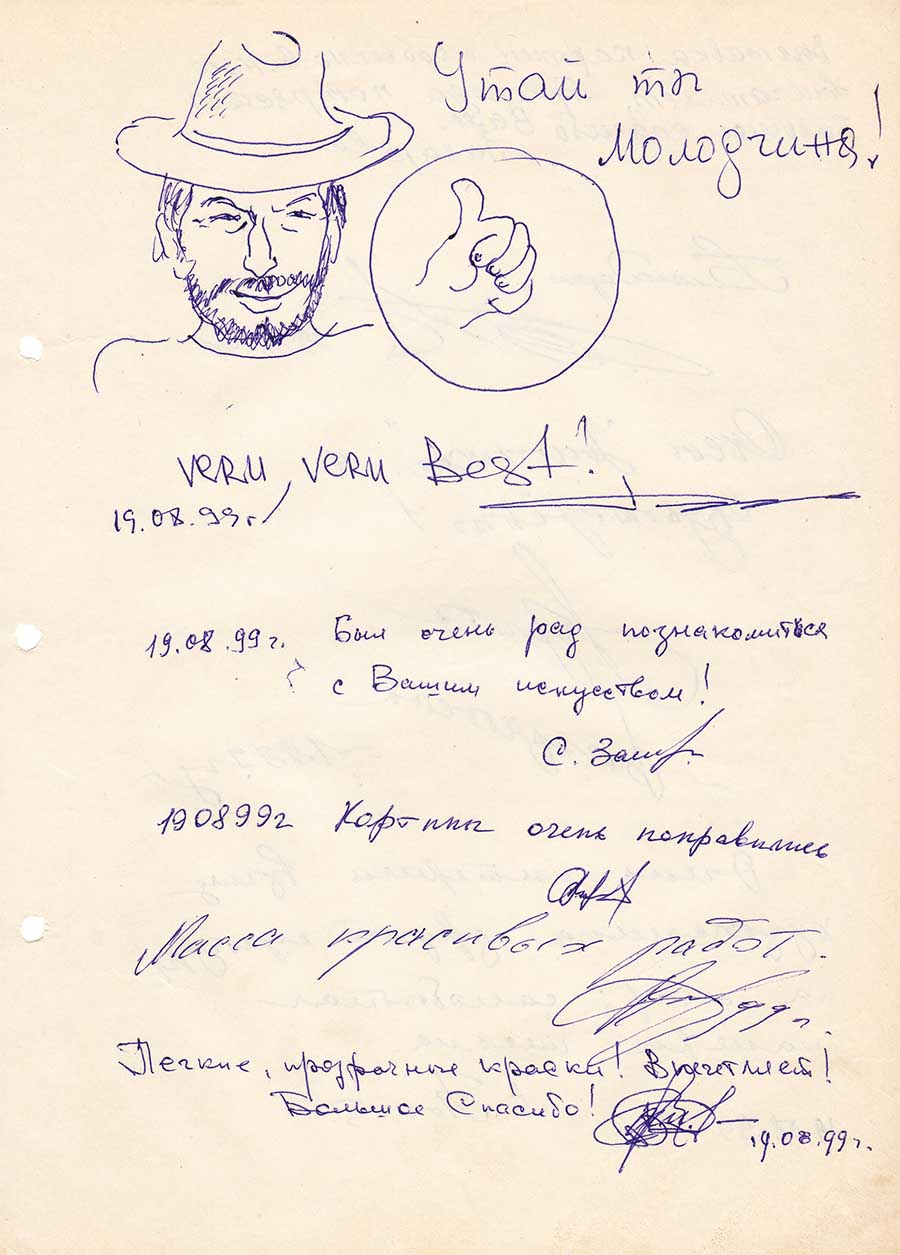 Утай ты
Молодчина!
veru, veru Best!
19.08.99г.
19.08.99г. Был очень рад познакомиться
с Вашим искусством!
С.
190899г Картины очень понравились
Масса красивых работ.
99г.
Легкие, прозрачные краски! Впечатляет!
Большое Спасибо!
19.08.99г.